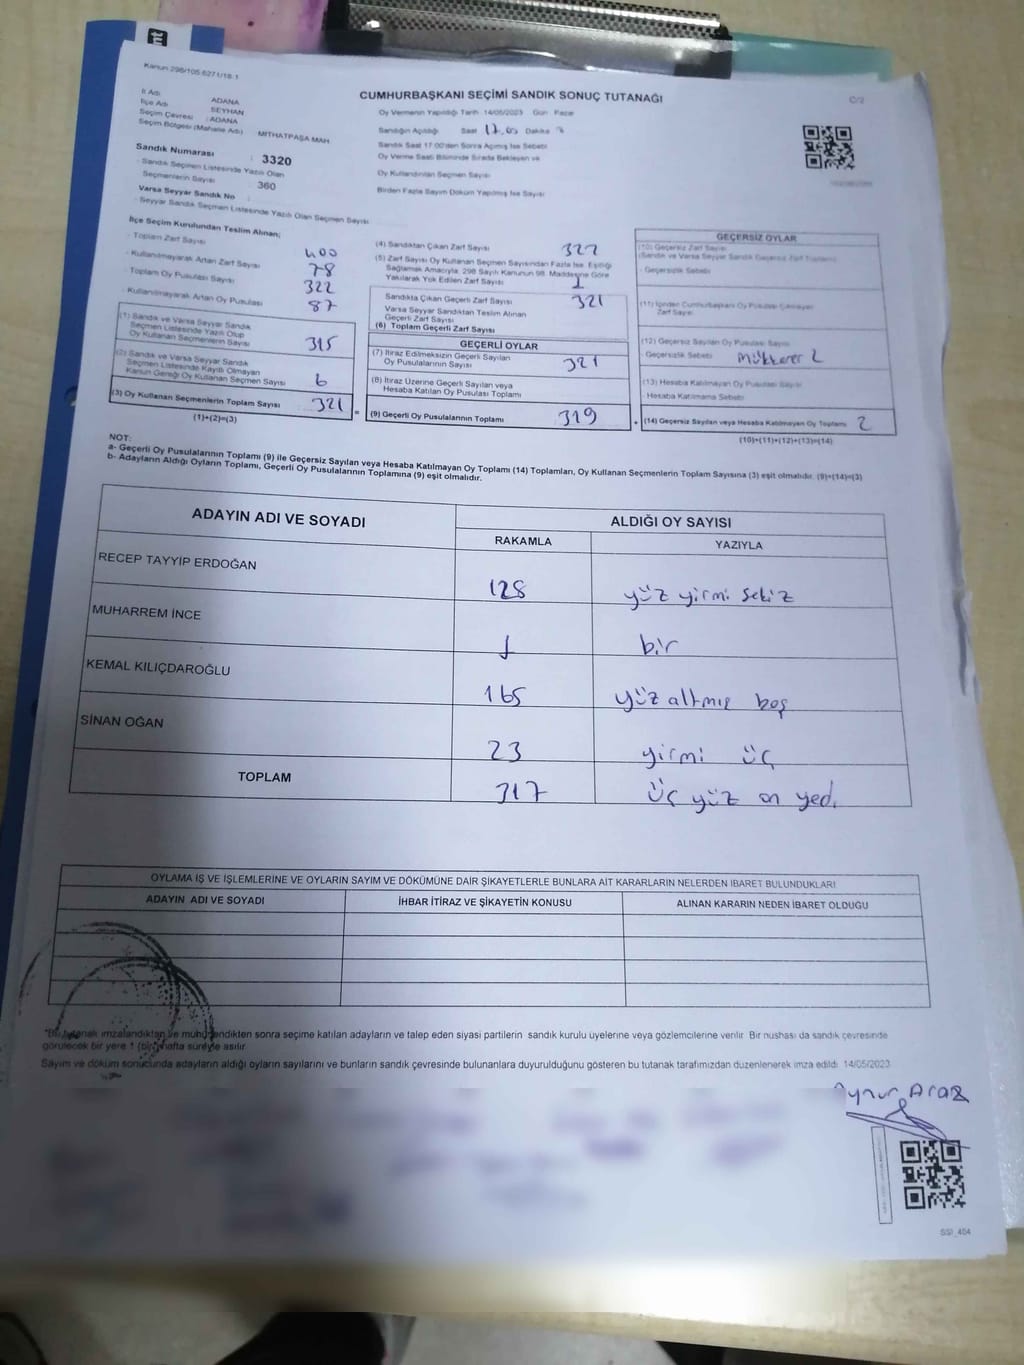 Kanun 298/105.6271/18.1
CUMHURBAŞKANI SEÇİMİ SANDIK SONUÇ TUTANAĞI
C/2
İl Adı ADANA
İlçe Adı SEYHAN
Seçim Çevresi : ADANA
Seçim Bölgesi (Mahalle Adı) MİTHATPAŞA MAH.
Oy Vermenin Yapıldığı Tarih 14/05/2023 Gün Pazar
Sandığın Açıldığı Saat 17.00 Dakika
Sandık Saat 17:00'den Sonra Açılmış İse Sebebi
Oy Verme Saati Bitiminde Sırada Bekleyen ve
Oy Kullandırılan Seçmen Sayısı
Birden Fazla Sayım Döküm Yapılmış İse Sayısı
Sandık Numarası : 3320
- Sandık Seçmen Listesinde Yazılı Olan
Seçmenlerin Sayısı : 360
Varsa Seyyar Sandık No :
- Seyyar Sandık Seçmen Listesinde Yazılı Olan Seçmen Sayısı
İlçe Seçim Kurulundan Teslim Alınan;
- Toplam Zarf Sayısı 400
- Kullanılmayarak Artan Zarf Sayısı 78
- Toplam Oy Pusulası Sayısı 322
- Kullanılmayarak Artan Oy Pusulası 87
(1) Sandık ve Varsa Seyyar Sandık
Seçmen Listesinde Yazılı Olup
Oy Kullanan Seçmenlerin Sayısı 315
(2) Sandık ve Varsa Seyyar Sandık
Seçmen Listesinde Kayıtlı Olmayan
Kanun Gereği Oy Kullanan Seçmen Sayısı 6
(3) Oy Kullanan Seçmenlerin Toplam Sayısı 321
(1)+(2)=(3)
(4) Sandıktan Çıkan Zarf Sayısı 322
(5) Zarf Sayısı Oy Kullanan Seçmen Sayısından Fazla İse, Eşitliği
Sağlamak Amacıyla, 298 Sayılı Kanunun 98. Maddesine Göre
Yakılarak Yok Edilen Zarf Sayısı 1
Sandıkta Çıkan Geçerli Zarf Sayısı 321
Varsa Seyyar Sandıktan Teslim Alınan
Geçerli Zarf Sayısı
(6) Toplam Geçerli Zarf Sayısı
GEÇERLİ OYLAR
(7) İtiraz Edilmeksizin Geçerli Sayılan
Oy Pusulalarının Sayısı 321
(8) İtiraz Üzerine Geçerli Sayılan veya
Hesaba Katılan Oy Pusulası Toplamı
= (9) Geçerli Oy Pusulalarının Toplamı 319
GEÇERSİZ OYLAR
(10) Geçersiz Zarf Sayısı
(Sandık ve Varsa Seyyar Sandık Geçersiz Zarf Toplamı)
- Geçersizlik Sebebi
(11) İçinden Cumhurbaşkanı Oy Pusulası Çıkmayan
Zarf Sayısı
(12) Geçersiz Sayılan Oy Pusulası Sayısı
- Geçersizlik Sebebi Mükkerer 2
(13) Hesaba Katılmayan Oy Pusulası Sayısı
- Hesaba Katılmama Sebebi
+ (14) Geçersiz Sayılan veya Hesaba Katılmayan Oy Toplamı 2
(10)+(11)+(12)+(13)=(14)
NOT:
a- Geçerli Oy Pusulalarının Toplamı (9) ile Geçersiz Sayılan veya Hesaba Katılmayan Oy Toplamı (14) Toplamları, Oy Kullanan Seçmenlerin Toplam Sayısına (3) eşit olmalıdır. (9)+(14)=(3)
b- Adayların Aldığı Oyların Toplamı, Geçerli Oy Pusulalarının Toplamına (9) eşit olmalıdır.
ADAYIN ADI VE SOYADI
ALDIĞI OY SAYISI
RAKAMLA YAZIYLA
RECEP TAYYİP ERDOĞAN 128 yüz yirmi sekiz
MUHARREM İNCE 1 bir
KEMAL KILIÇDAROĞLU 165 yüz altmış beş
SİNAN OĞAN 23 yirmi üç
TOPLAM 317 üç yüz on yedi
OYLAMA İŞ VE İŞLEMLERİNE VE OYLARIN SAYIM VE DÖKÜMÜNE DAİR ŞİKAYETLERLE BUNLARA AİT KARARLARIN NELERDEN İBARET BULUNDUKLARI
ADAYIN ADI VE SOYADI İHBAR İTİRAZ VE ŞİKAYETİN KONUSU ALINAN KARARIN NEDEN İBARET OLDUĞU
*Bu tutanak imzalandıktan ve mühürlendikten sonra seçime katılan adayların ve talep eden siyasi partilerin sandık kurulu üyelerine veya gözlemcilerine verilir. Bir nüshası da sandık çevresinde
görülecek bir yere 1 (bir) hafta süreyle asılır.
Sayım ve döküm sonucunda adayların aldığı oyların sayılarını ve bunların sandık çevresinde bulunanlara duyurulduğunu gösteren bu tutanak tarafımızdan düzenlenerek imza edildi. 14/05/2023
Aynur Araz
SSI_404